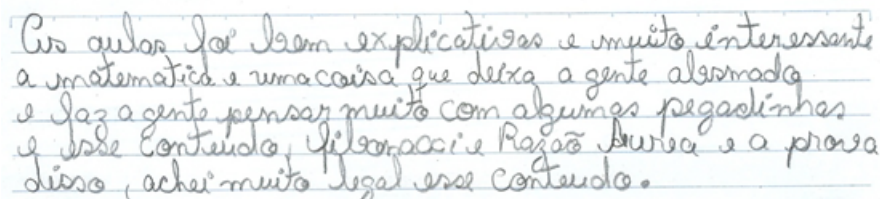 As aulas foi bem explicativas e muito interessante
a matematica e uma coisa que deixa a gente abismado
e faz a gente pensar muito com algumas pegadinhas
e esse conteudo, fibonacci e Razaõ Aurea e a prova
disso, achei muito legal esse conteudo.